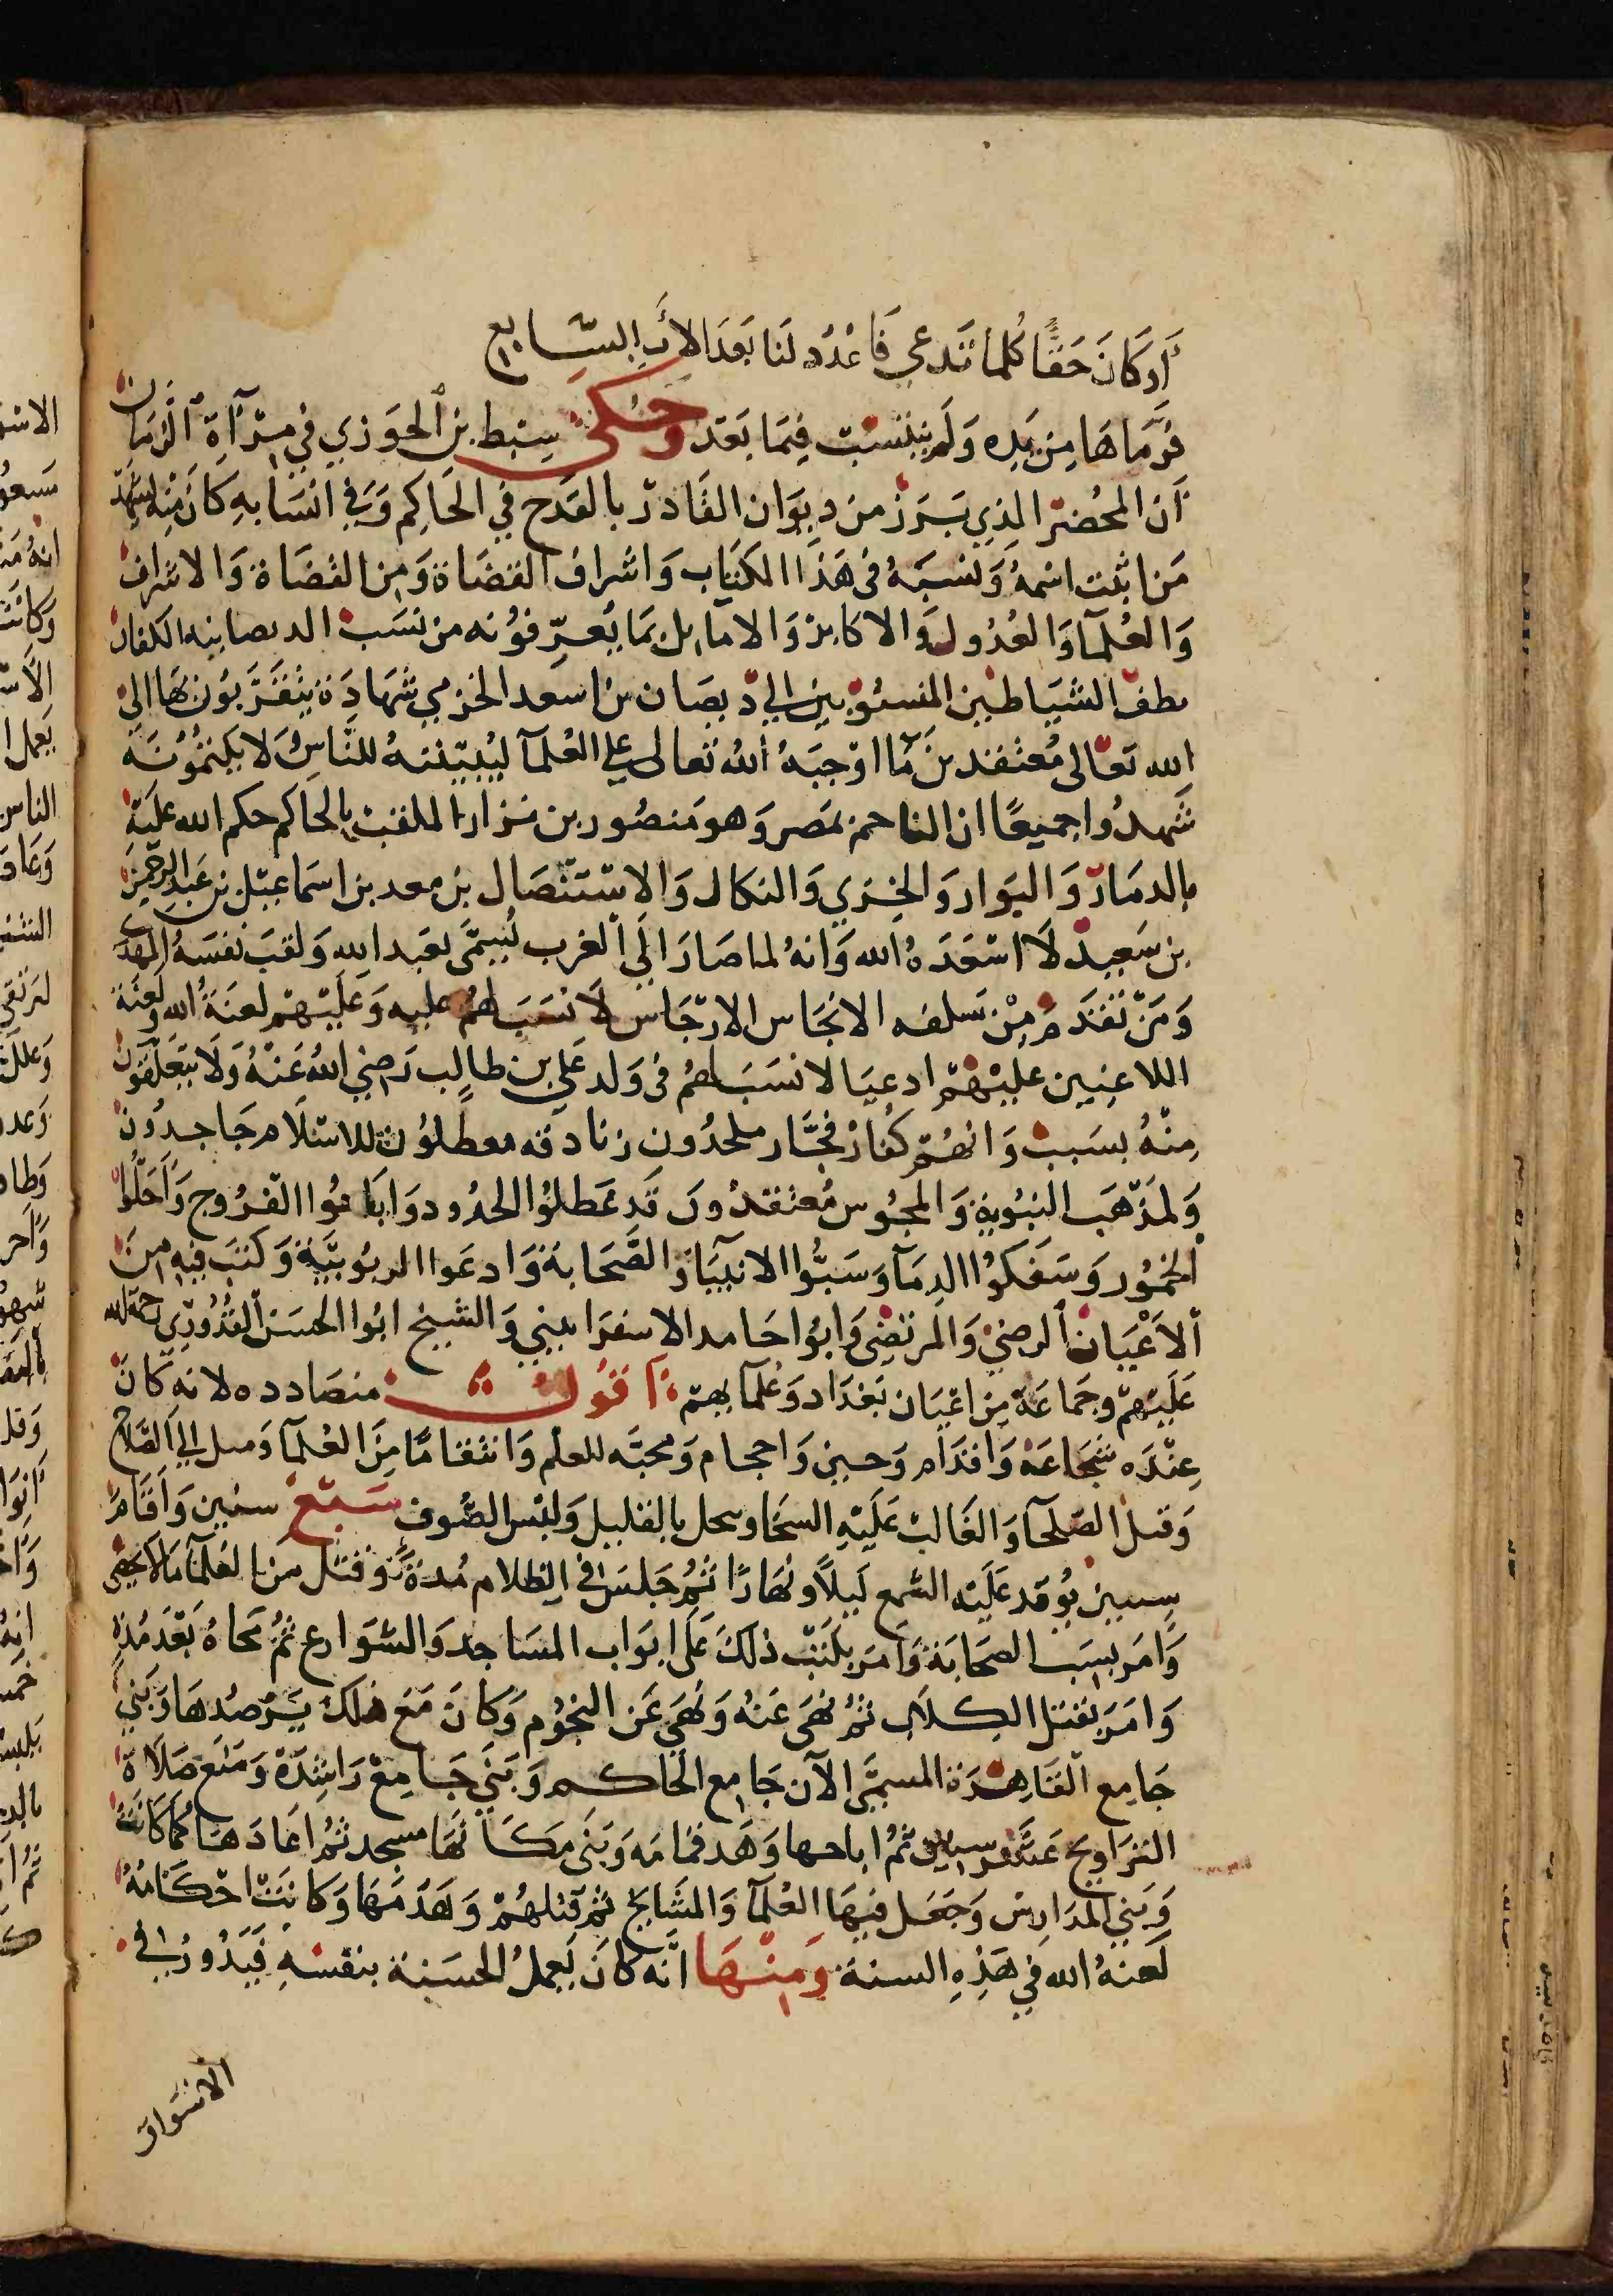 أو كان حقا كلما تدعي فاعدد لنا بعد الأب السابع
فرماها من يده ولم ينتسب فيما بعد وحكى سبط بن الجوزي في مرآة الزمان
أن المحضر الذي برز من ديوان القادر بالقدح في الحاكم وفي انسابه كان منه يشهد
من اثبت اسمه ونسبه في هذا الكتاب واشراف القضاة ومن القضاة والاشراف
والعلمآ والعدول والاكابر والاماثل بما يعرفونه من نسب الديصانيه الكفار
نطف الشياطين المنسوبين الي ديصان بن اسعد الخرمي شهادة يتقربون بها الى
الله تعالى معتقدين ما اوجبه الله تعالى علي العلمآ ليبيننه للناس لا يكتمونه
شهدوا جميعا ان الناجم بمصر وهو منصور بن نزار الملقب بالحاكم حكم الله عليه
بالدمار والبوار والخزي والنكال والاستئصال بن معد بن اسماعيل بن عبد الرحمن
بن سعيد لا اسعده الله وانه لما صار الي الغرب تسمى بعبد الله ولقب نفسه المهدي
ومن تقدم من سلفه الانجاس الارجاس لا نسب لهم عليه وعليهم لعنة الله ولعنة
اللاعنين عليهم ادعيا لا نسب لهم في ولد علي بن طالب رضي الله عنه ولا يتعلقون
منه بسبب وانهم كفار فجار ملحدون زنادقه معطلون للاسلام جاحدون
ولمذهب الثنوية والمجوس معتقدون قد عطلوا الحدود واباحوا الفروج واحلوا
الخمور وسفكوا الدمآ وسبوا الانبيآ والصحابة وادعوا الربوبية وكتب فيه من
الأعيان الرضي والمرتضى وابوا حامد الاسفرايني والشيخ ابوا الحسن القدوري رحمة الله
عليهم وجماعة من اعيان بغداد وعلمآيهم اقول منصادده لانه كان
عنده شجاعة واقدام وجبن واحجام ومحبه للعلم وانتقاما من العلمآ وميل الي الصلاح
وقتل الصلحآ والغالب عليه السخا وبخل بالقليل ولبس الصوف سبع سنين واقام
سنين يوقد عليه الشمع ليلا ونهارا ثم جلس في الظلام مدة وقتل من العلمآ ما لا يحصى
وامر بسب الصحابة وامر بكتب ذلك على ابواب المساجد والشوارع ثم محاه بعد مدة
وامر بقتل الكلاب ثم نهى عنه ونهى عن النجوم وكان مع ذلك يرصدها وبني
جامع القاهرة المسمى الآن جامع الحاكم وبنى جامع راشدة ومنع صلاة
التراويح عشر سنين ثم اباحها وهدم قمامه وبنى مكانها مسجد ثم اعادها كما كانت
وبني المدارس وجعل فيها العلمآ والمشايخ ثم قتلهم وهدمها وكانت احكامه
لعنه الله في هذه السنة ومنها انه كان يعمل الحسبة بنفسه فيدور في
الاسواق